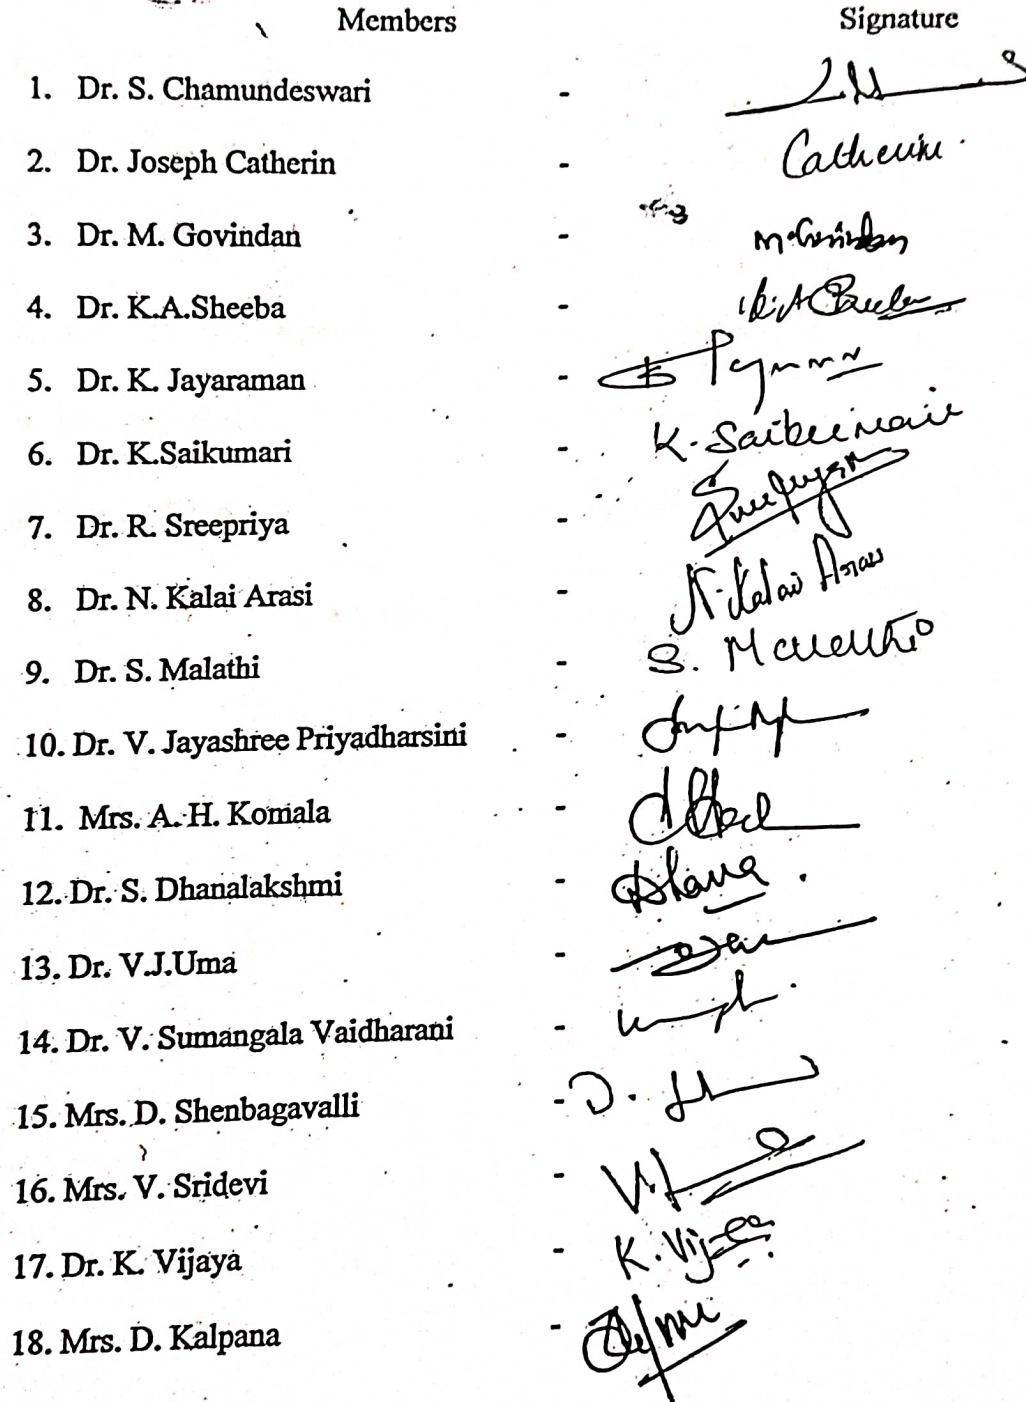 Members Signature
1. Dr. S. Chamundeswari -
2. Dr. Joseph Catherin - Catherine.
3. Dr. M. Govindan - M. Govindan
4. Dr. K.A.Sheeba - K.A Sheeba
5. Dr. K. Jayaraman -
6. Dr. K.Saikumari - K. Saikumari
7. Dr. R. Sreepriya -
8. Dr. N. Kalai Arasi - N. Kalai Arasi
9. Dr. S. Malathi - S. Malathi
10. Dr. V. Jayashree Priyadharsini -
11. Mrs. A. H. Komala -
12. Dr. S. Dhanalakshmi - Dhana.
13. Dr. V.J.Uma -
14. Dr. V. Sumangala Vaidharani -
15. Mrs. D. Shenbagavalli - D.
16. Mrs. V. Sridevi - V.
17. Dr. K. Vijaya - K. Vijaya
18. Mrs. D. Kalpana -